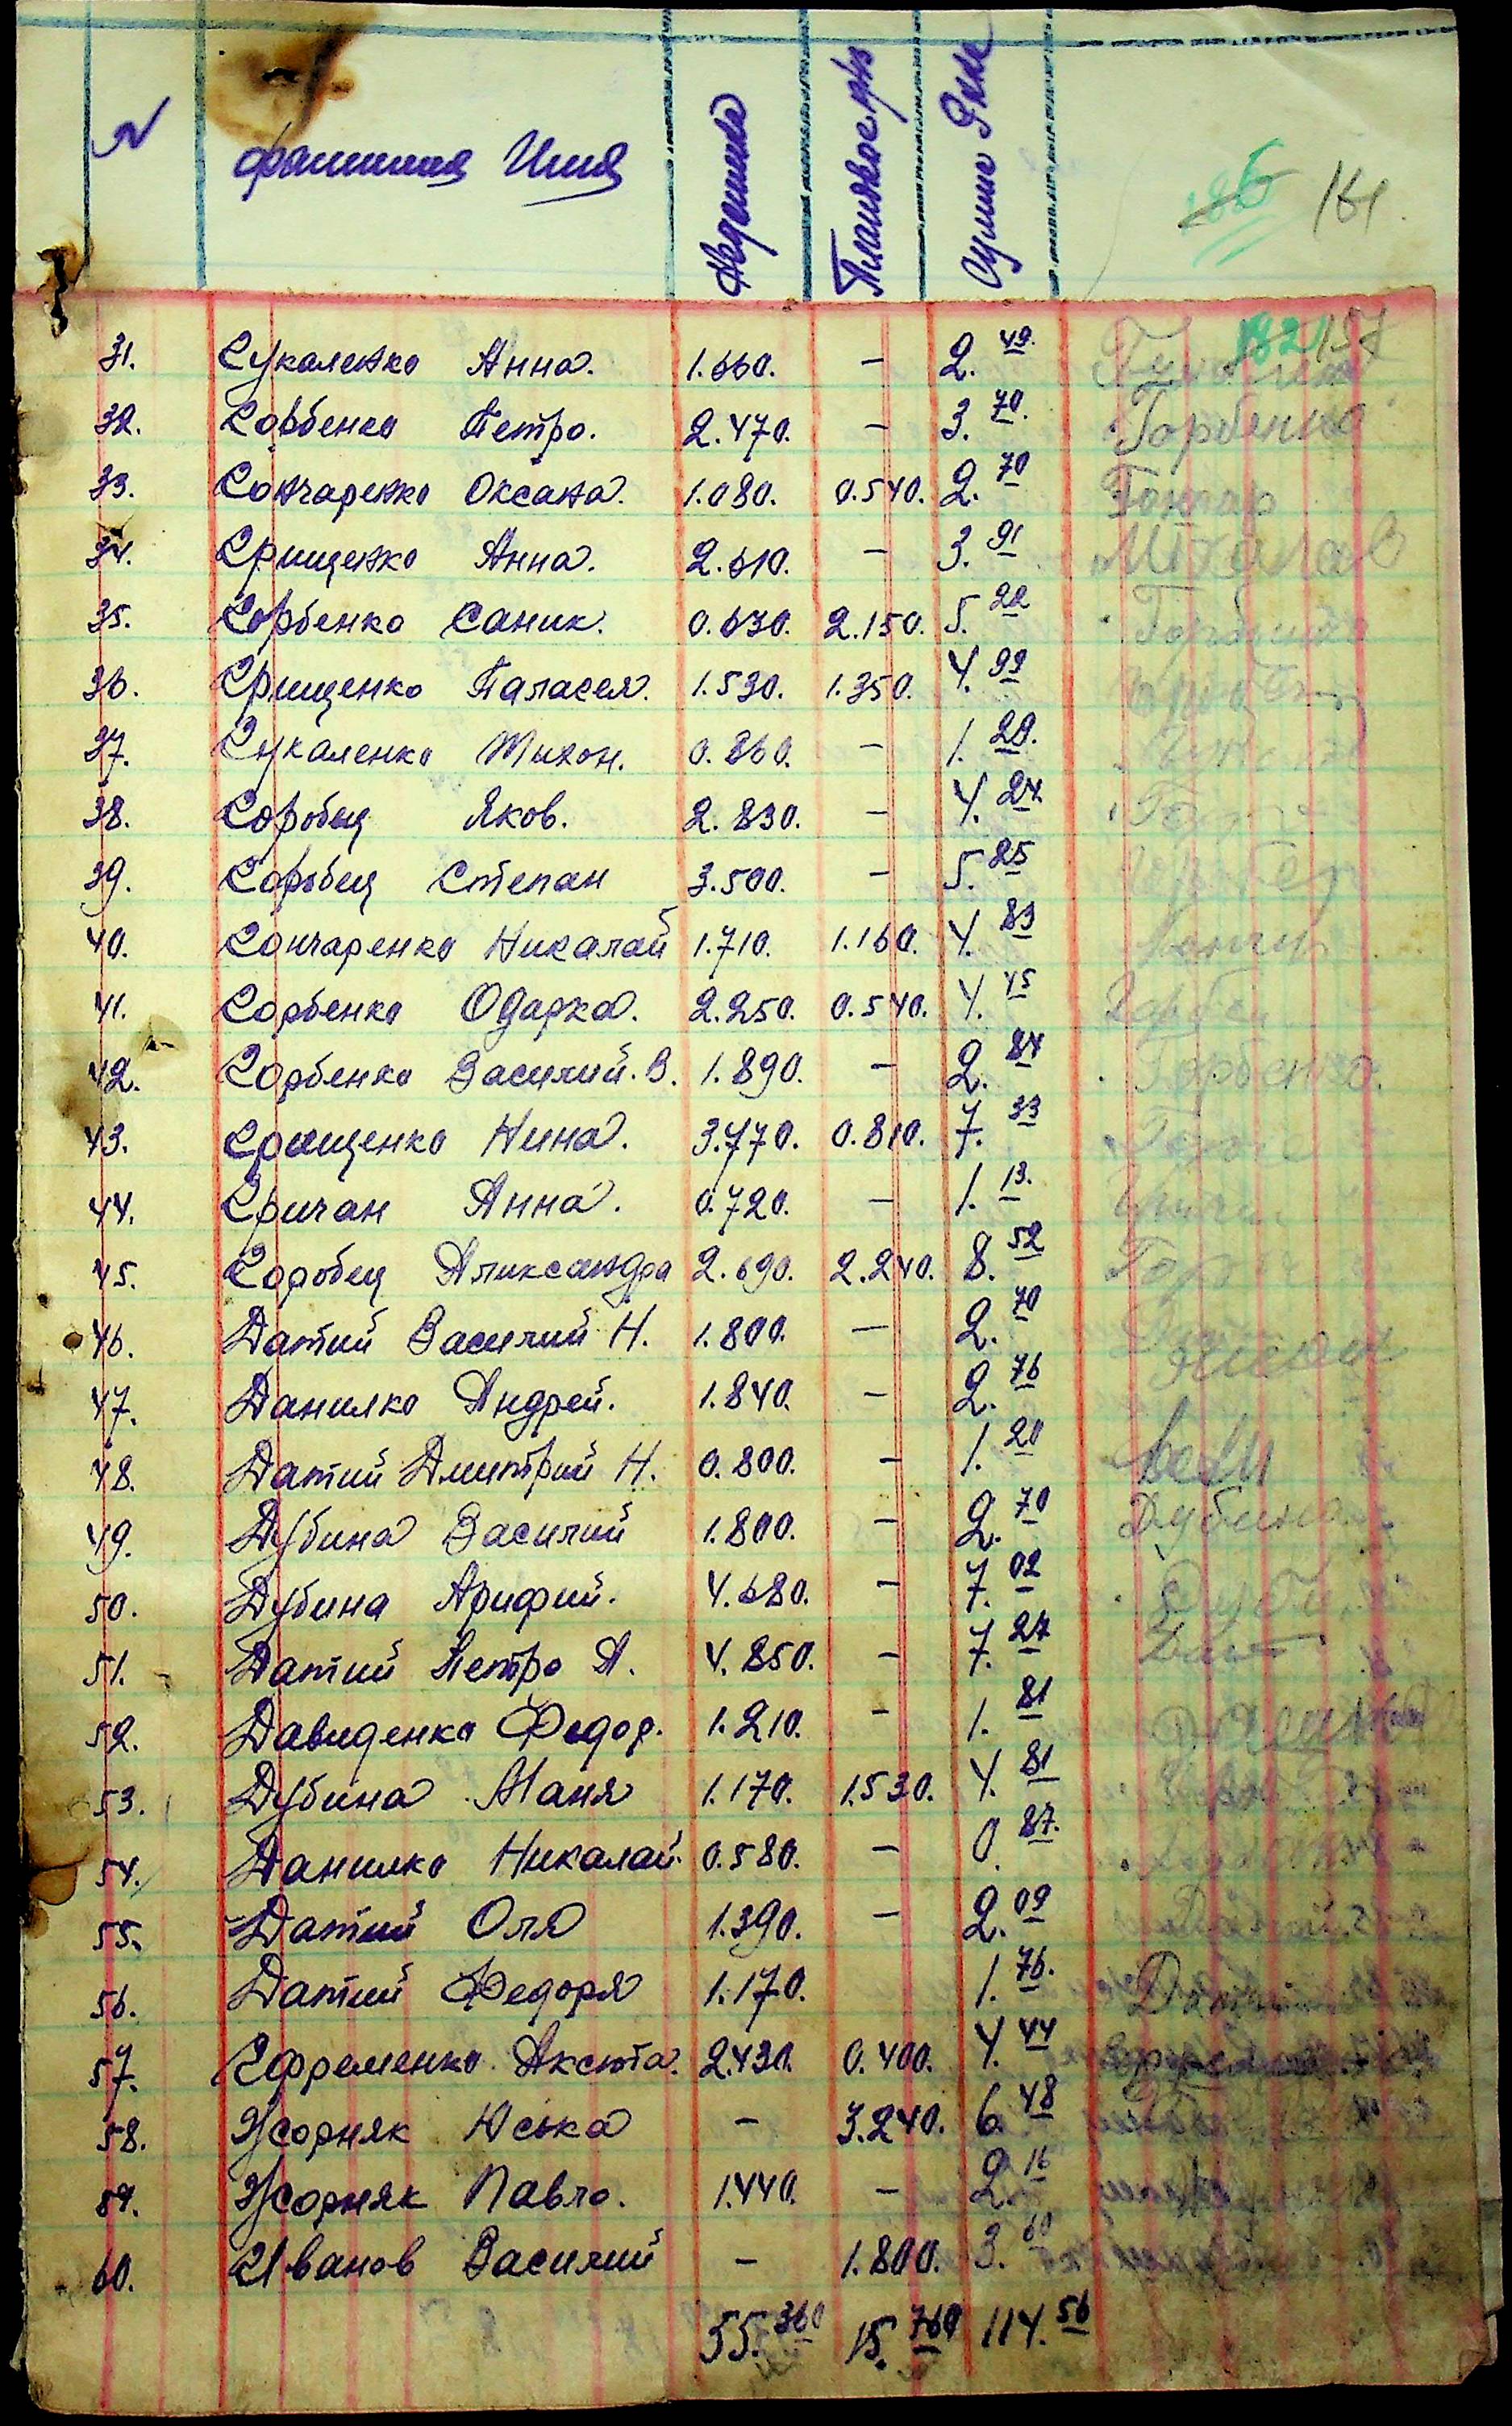 N Фамилия Имя Сумма
186 181
182 157
31. Гукаленко Анна. 1.660. – 2.49.
32. Горбенко Петро. 2.470. – 3.70. Горбенко
33. Гончаренко Оксана. 1.080. 0.540. 2.70 Гончар
34. Грищенко Анна. 2.610. – 3.91
35. Горбенко Саник. 0.630. 2.150. 5.22
36. Грищенко Паласея. 1.530. 1.350. 4.99
37. Гукаленко Тихон. 0.860. – 1.29.
38. Горобец Яков. 2.830. – 4.24.
39. Горобец Степан 3.500. – 5.25
40. Гончаренко Никалай 1.710. 1.160. 4.83
41. Горбенко Одарка. 2.250. 0.540. 4.45
42. Горбенко Василий. В. 1.890. – 2.84 Горбенко.
43. Грищенко Нина. 3.770. 0.810. 7.33
44. Гричан Анна. 0.720. – 1.13.
45. Горобец Александра 2.690. 2.240. 8.52
46. Датий Василий Н. 1.800. – 2.70
47. Данилко Андрей. 1.840. – 2.76
48. Датий Дмитрий Н. 0.800. – 1.20
49. Дубина Василий 1.800. – 2.70 Дубина
50. Дубина Арифий. 4.680. – 7.02
51. Датий Петро А. 4.850. – 7.27
52. Давиденко Федор. 1.210. – 1.81
53. Дубина Маня 1.170. 1.530. 4.81
54. Данилко Никалай. 0.580. – 0.87.
55. Датий Оля 1.390. – 2.09
56. Датий Федоря 1.170. 1.76. Датий
57. Ефременко Аксюта. 2.430. 0.400. 4.44
58. Жорняк Юська – 3.240. 6.48
59. Жорняк Павло. 1.440. – 2.16
60. Иванов Василий – 1.800. 3.60
55.360 15.760 114.56